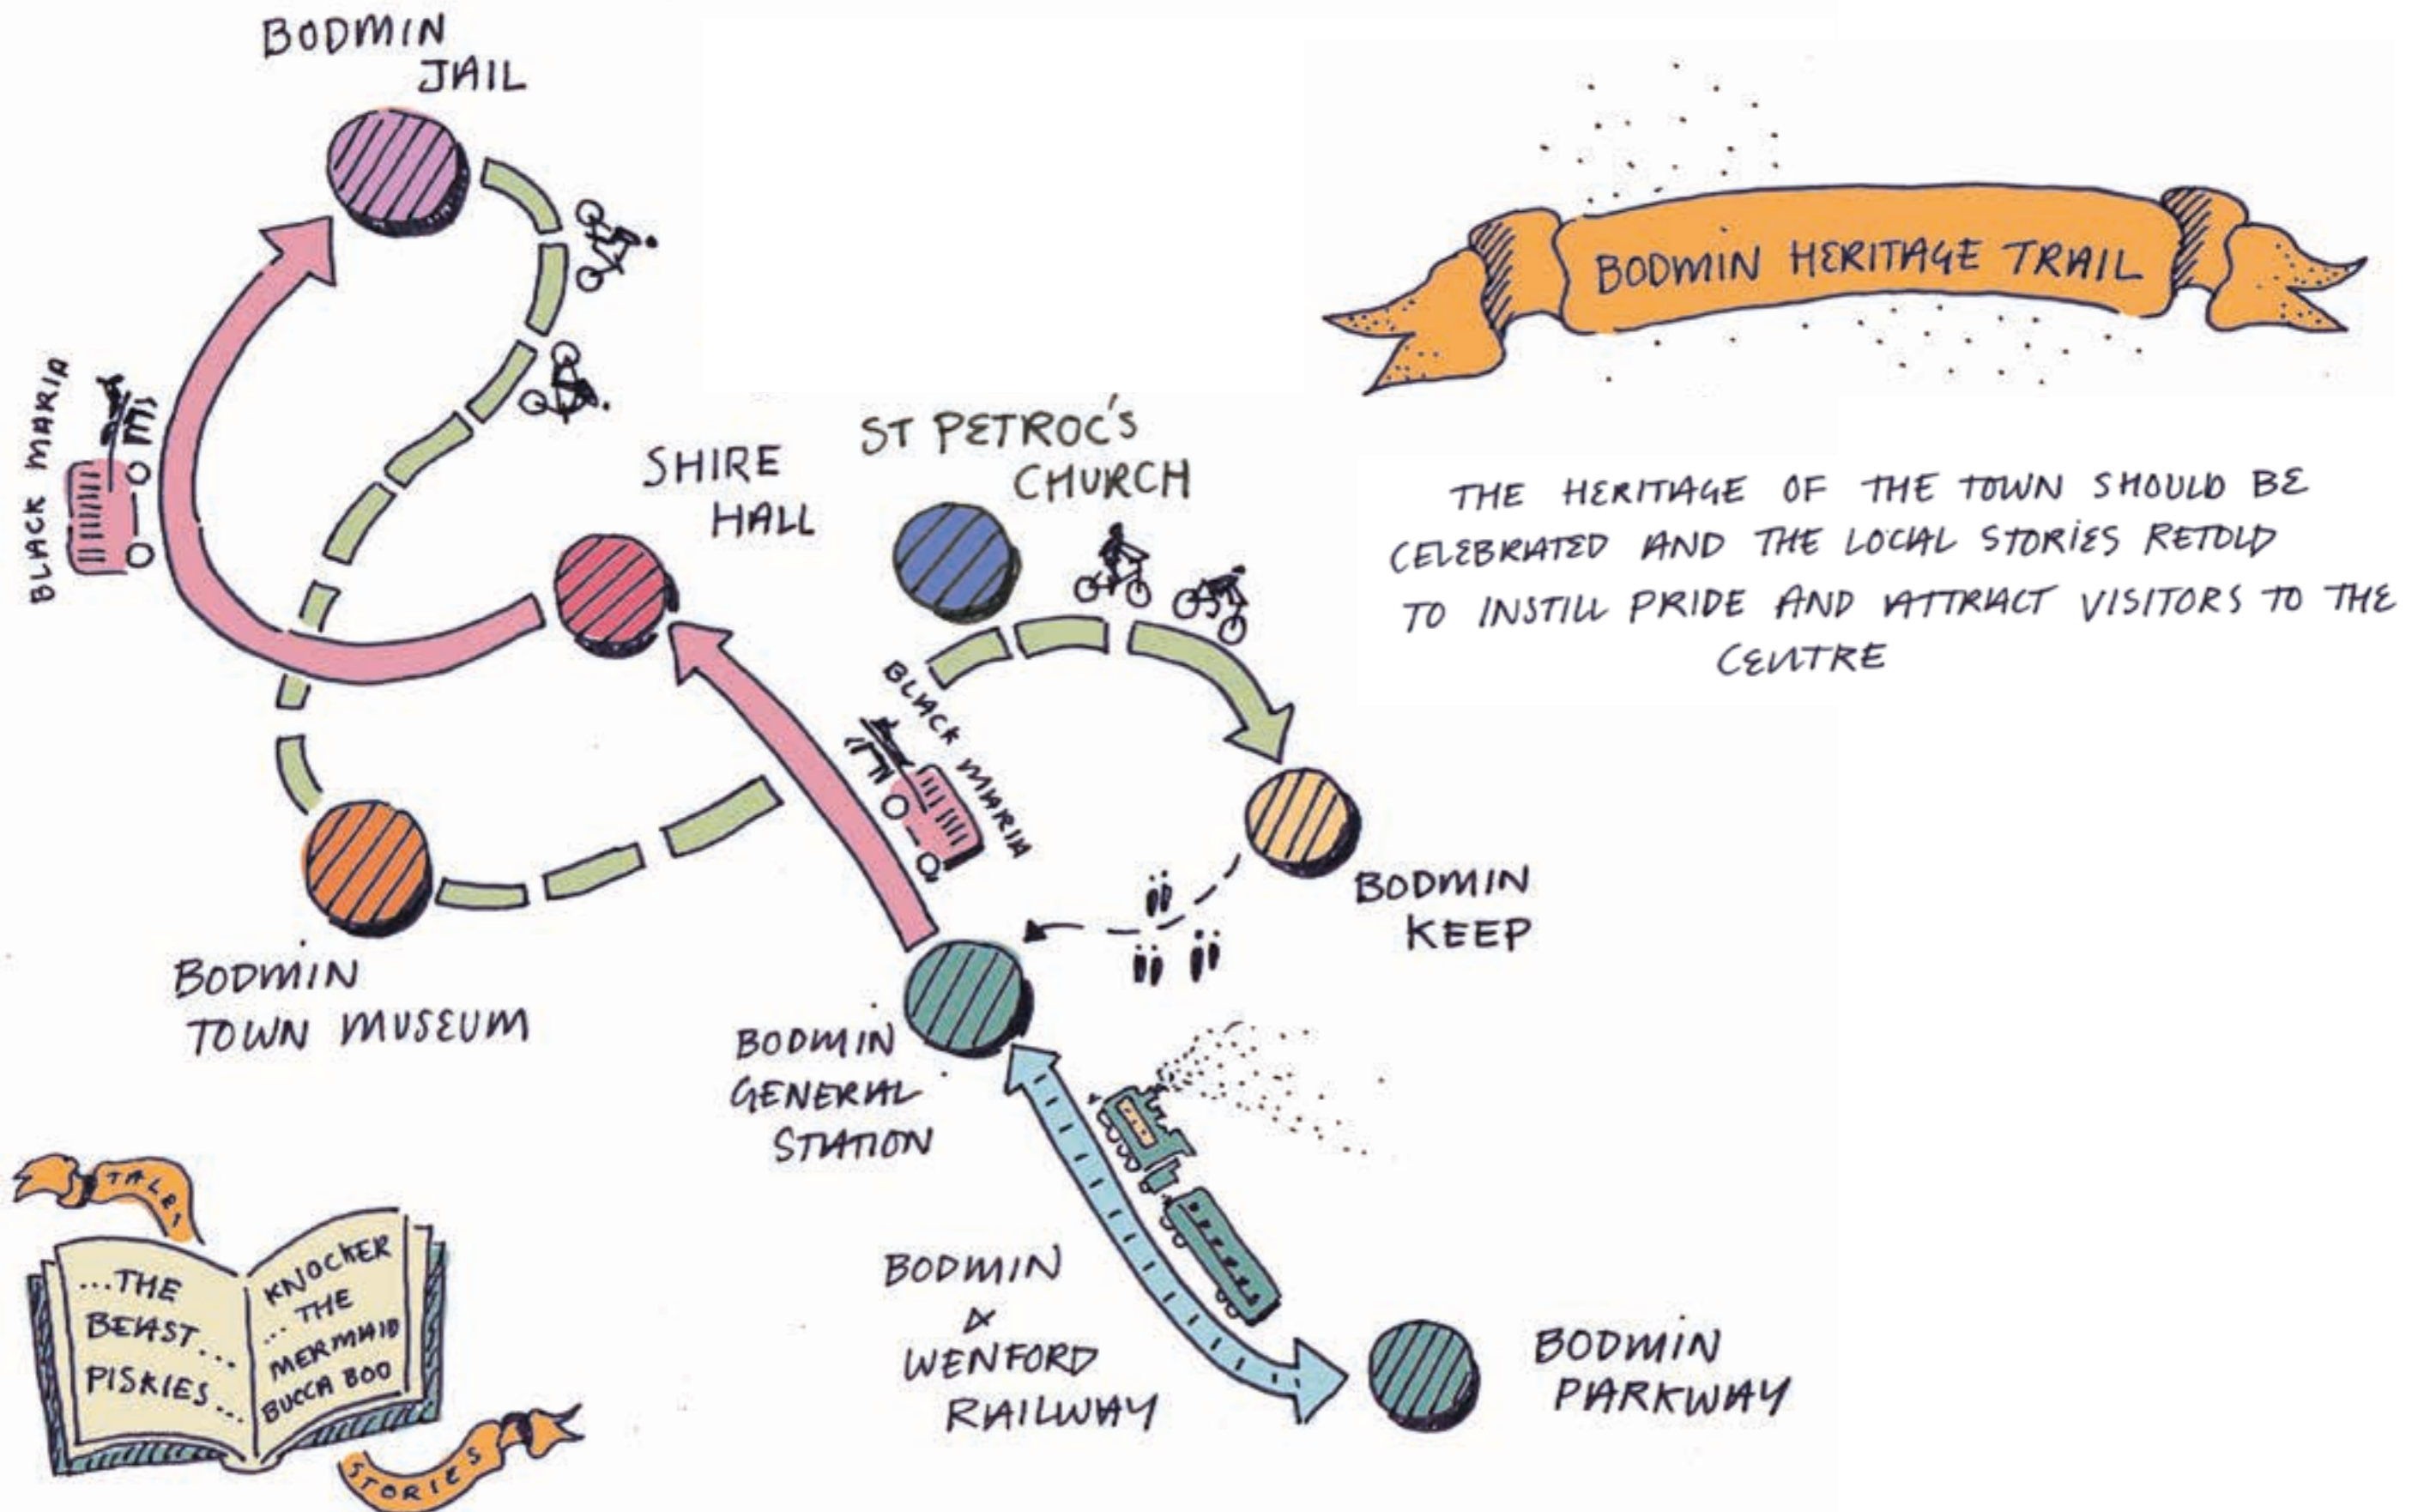 BODMIN
JAIL
BODMIN HERITAGE TRAIL
BLACK MARIA
SHIRE
HALL
ST PETROC'S
CHURCH
THE HERITAGE OF THE TOWN SHOULD BE
CELEBRATED AND THE LOCAL STORIES RETOLD
TO INSTILL PRIDE AND ATTRACT VISITORS TO THE
CENTRE
BLACK MARIA
BODMIN
KEEP
BODMIN
TOWN MUSEUM
BODMIN
GENERAL
STATION
BODMIN
&
WENFORD
RAILWAY
BODMIN
PARKWAY
TALES
...THE
BEAST...
PISKIES...
KNOCKER
... THE
MERMAID
BUCCA BOO
STORIES